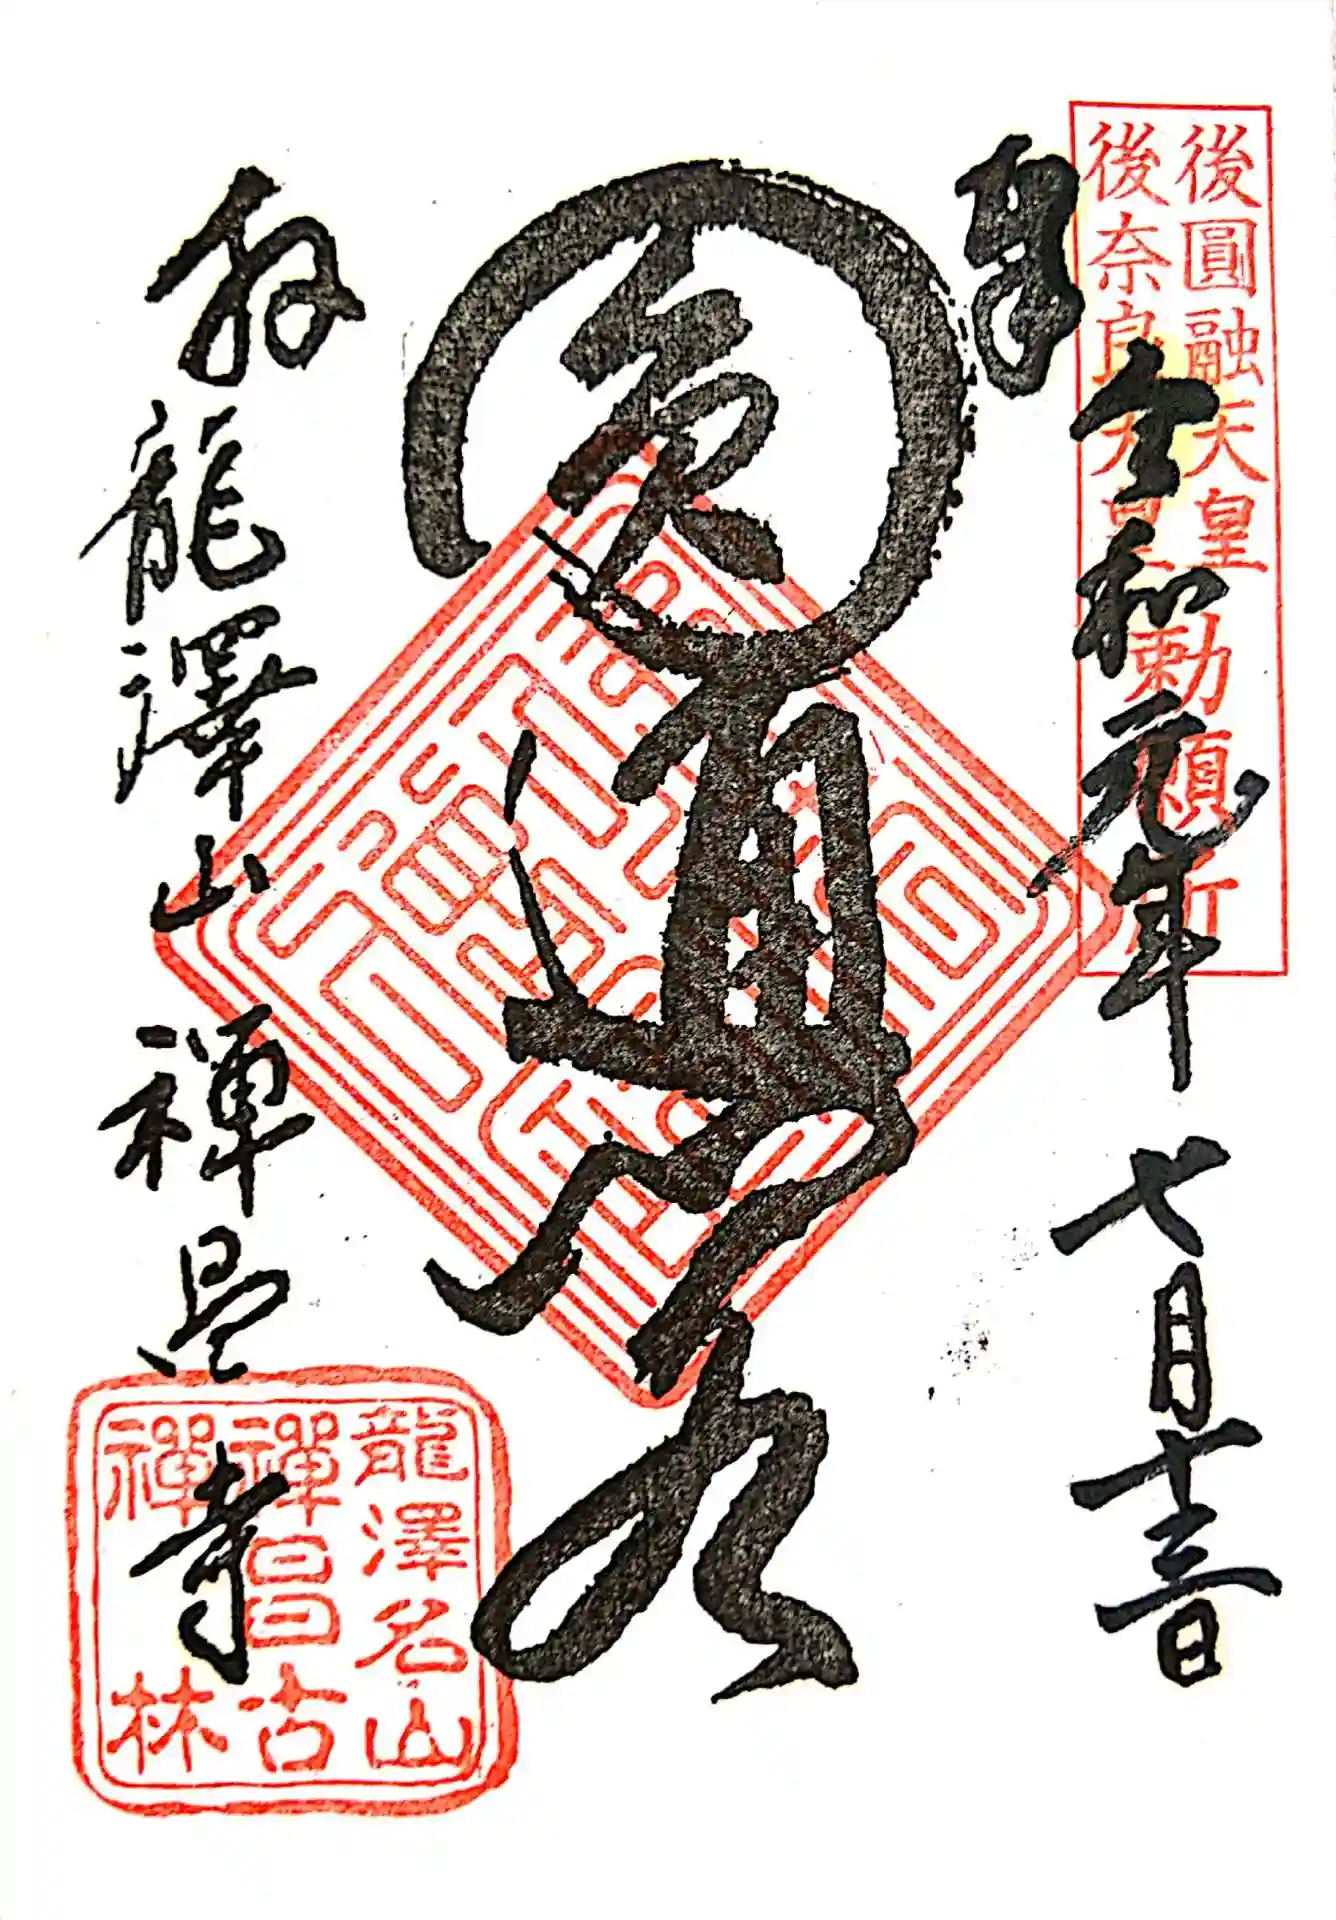 後圓融天皇
後奈良天皇
勅願所
令和元年 七月十三日
圓通
於龍澤山 禅昌寺
龍澤名山
禪昌古
禪林